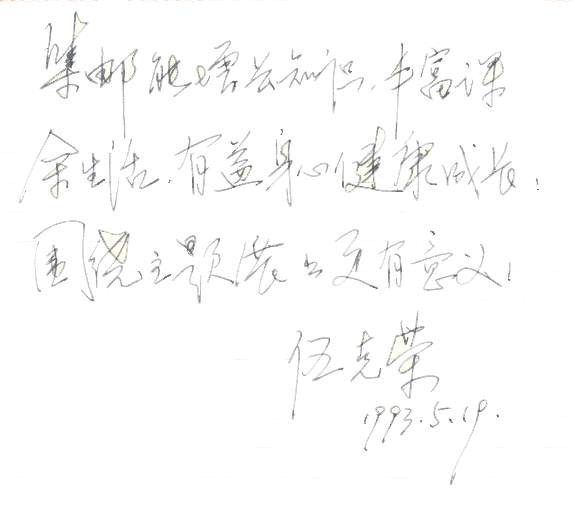 集邮能增长知识，丰富课
余生活，有益身心健康成长；
围绕主题 更有意义！
伍克荣
1993.5.19.